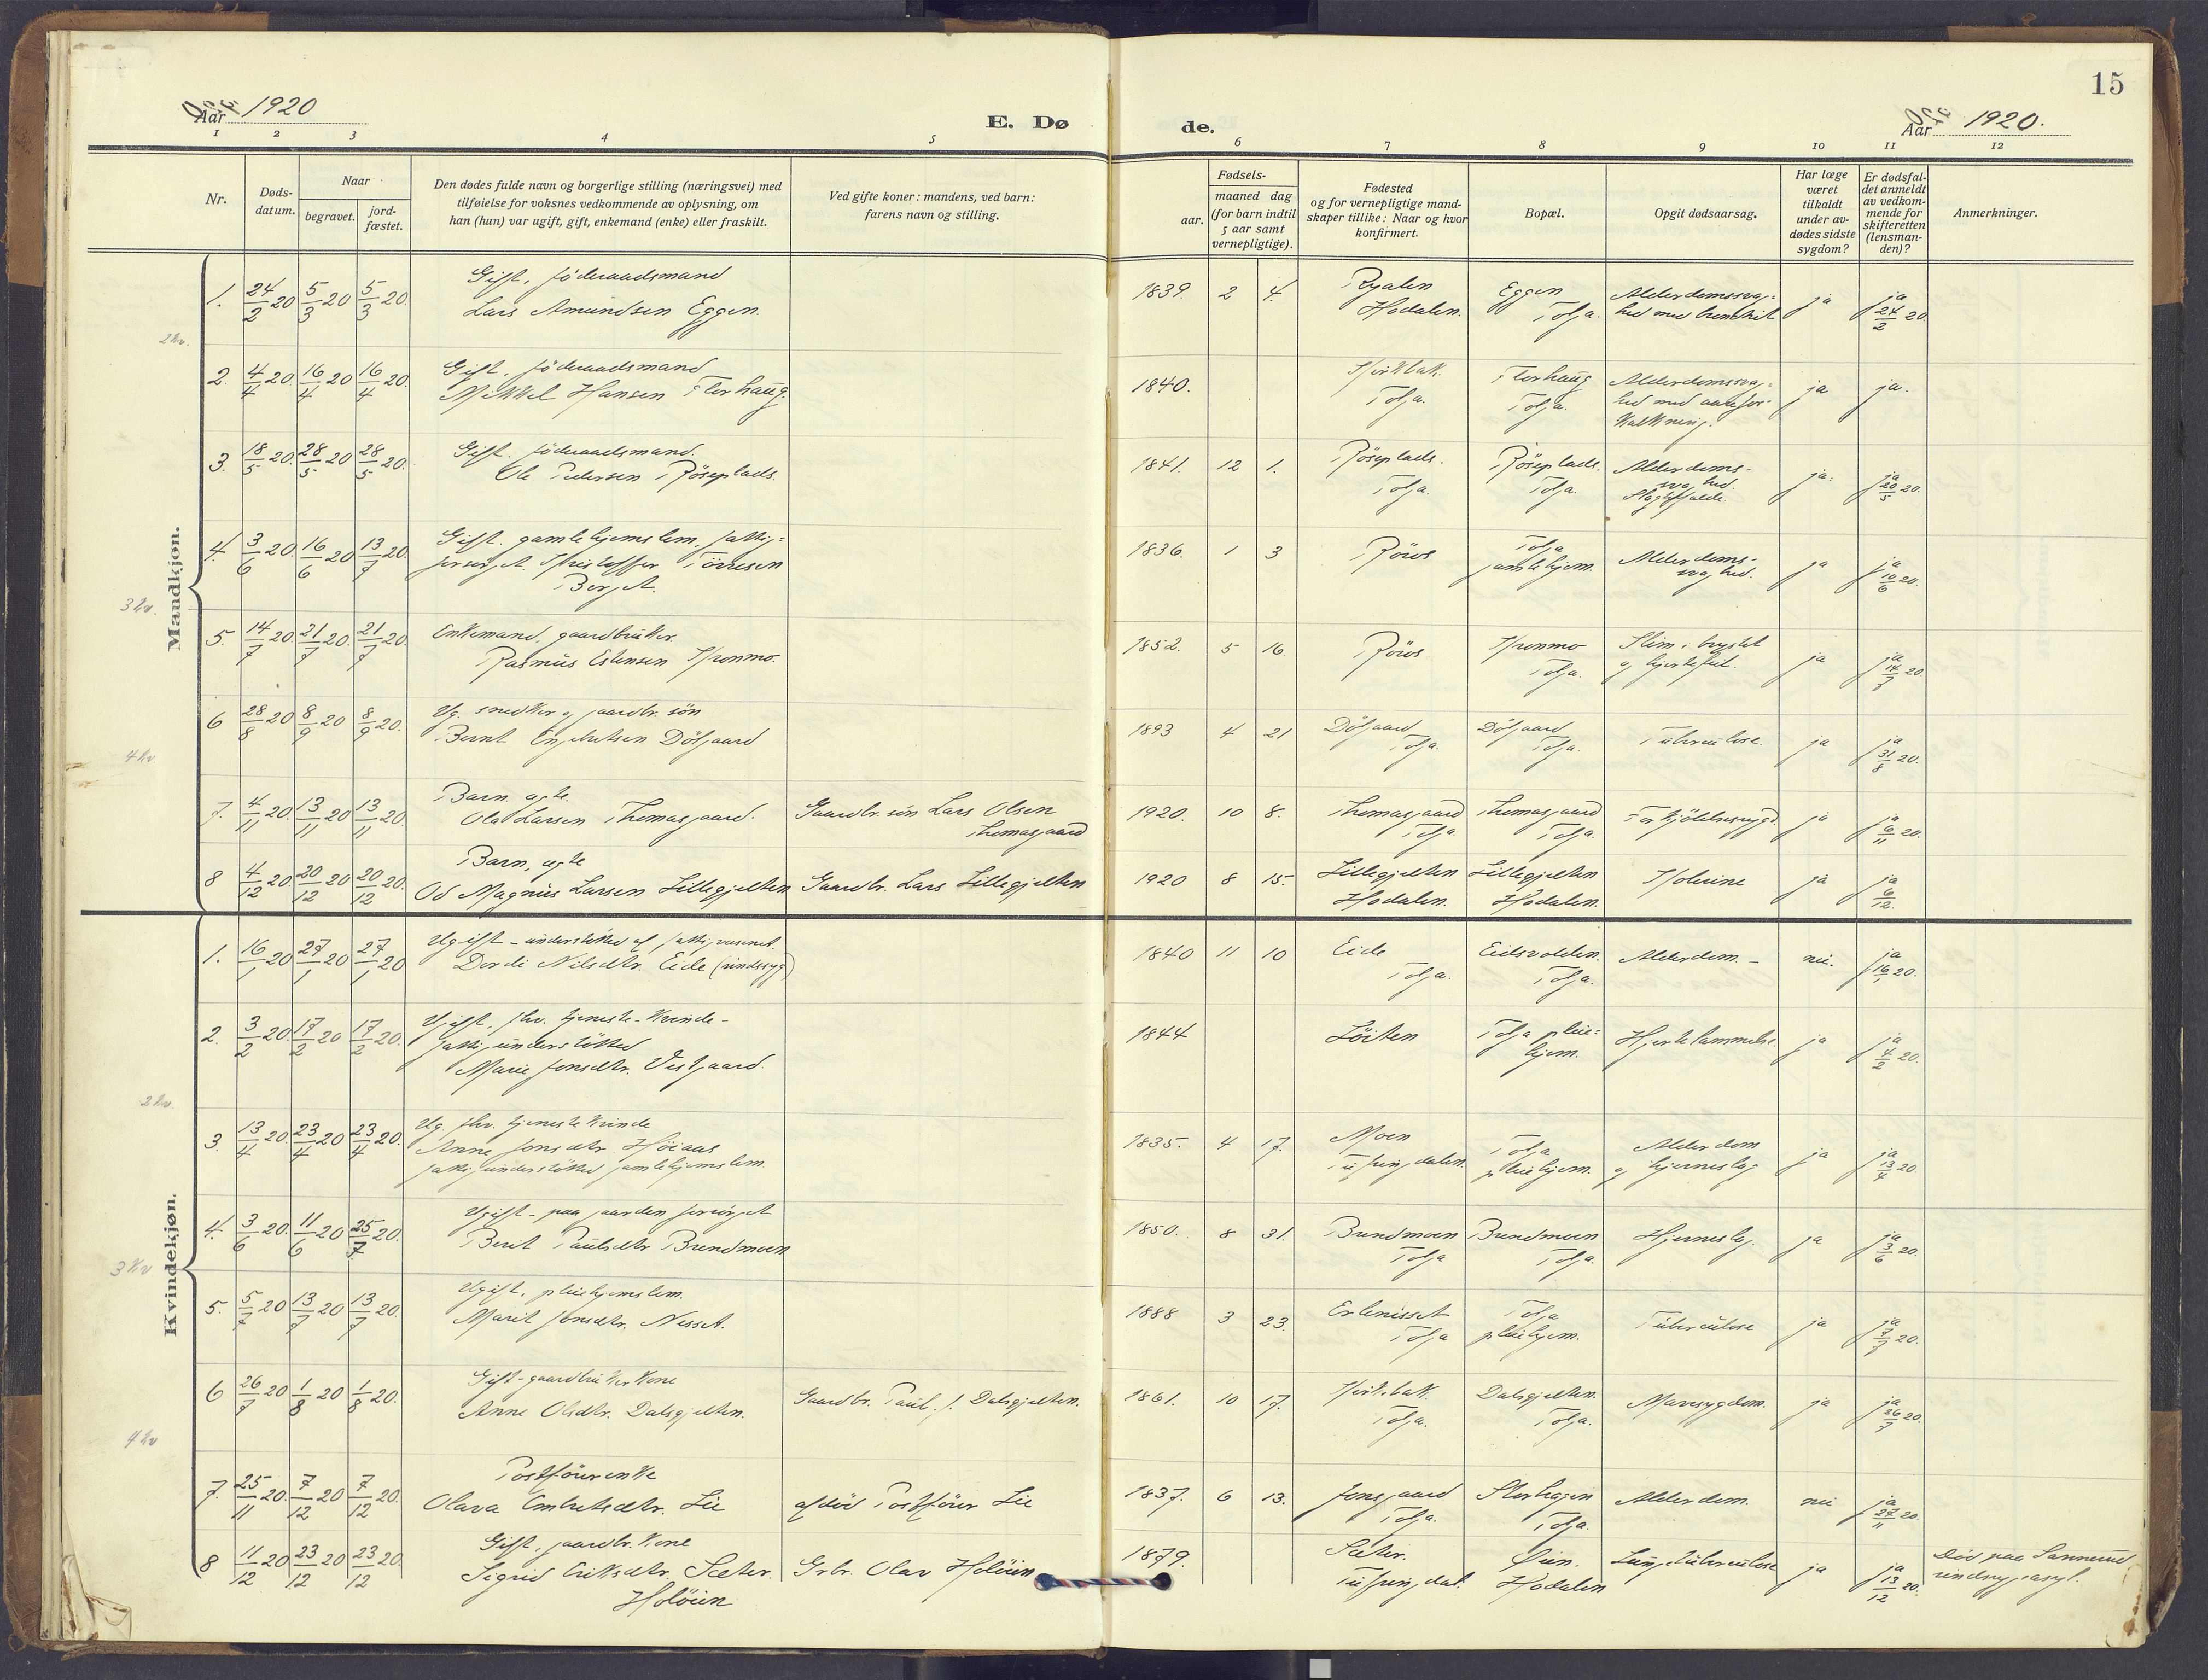 15
Aar 1920
E. Døde.
Aar 1920.
1 2 3 4 5 6 7 8 9 10 11 12
Nr.
Døds-
datum.
Naar
begravet.
jord-
fæstet.
Den dødes fulde navn og borgerlige stilling (næringsvei) med
tilføielse for voksnes vedkommende av oplysning, om
han (hun) var ugift, gift, enkemand (enke) eller fraskilt.
Ved gifte koner: mandens, ved barn:
farens navn og stilling.
Fødsels-
aar.
maaned dag
(for barn indtil
5 aar samt
vernepligtige).
Fødested
og for vernepligtige mand-
skaper tillike: Naar og hvor
konfirmert.
Bopæl.
Opgit dødsaarsag.
Har læge
været
tilkaldt
under av-
dødes sidste
sygdom?
Er dødsfal-
det anmeldt
av vedkom-
mende for
skifteretten
(lensman-
den)?
Anmerkninger.
Mandkjøn.
1. 24/2 20 5/3 20 5/3 20. Gift, föderaadsmand
Lars Amundsen Eggen. 1839. 2 4. Hodalen. Eggen Tolga. Alderdomssvag-
hed med bronkit ja ja 24/2 20.
2 kv.
2. 4/4 20. 16/4 20 16/4 20. Gift, föderaadsmand
Mikkel Hansen Florhaug. 1840. Tolga. Florhaug Tolga. Alderdomssvag-
hed med aarefor-
kalkning. ja ja.
3. 18/5 20. 28/5 20 28/5 20. Gift. föderaadsmand.
Ole Pedersen Röseplads. 1841. 12 1. Röseplads. Tolga. Röseplads. Tolga. Alderdoms-
svaghed.
Slagtilfælde. ja. ja 20/5 20.
4. 3/6 20. 16/6 20 13/7 20. Gift. gamlehjemslem, fattig-
forsörget. Kristoffer Törresen
Berget. 1836. 1 3 Röros Tolga
gamlehjem. Alderdoms-
svaghed. ja ja 10/6 20.
3 kv.
5. 14/7 20. 21/7 20. 21/7 20. Enkemand, gaardbruker
Rasmus Estensen Kronmo. 1852. 5 16. Röros Kronmo Tolga. Slim i brystet
og hjertefeil. ja ja 14/7 20.
6 28/8 20 8/9 20 8/9 20. Ug. snedker og gaardbr. sön
Bernt Engebretsen Dölgaard 1893 4 21 Dölgaard Tolga. Dölgaard Tolga. Tuberculose. ja ja 31/8 20.
4 kv
7. 4/11 20. 13/11 20 13/11 20. Barn. ægte.
Ola Larsen Thomasgaard. Gaardbr. sön Lars Olsen
Thomasgaard 1920. 10 8. Thomasgaard Tolga. Thomasgaard Tolga. Forkjölelsessygd. ja ja 6/11 20.
8 4/12 20. 20/12 20 20/12 20. Barn, ægte
Od Magnus Larsen Lillegjelten Gaardbr. Lars Lillegjelten 1920 8 15. Lillegjelten Hodalen. Lillegjelten Hodalen. Kolerine ja ja 6/12.
Kvindekjøn.
1. 16/1 20 27/1 20 27/1 20 Ugift - understöttet af fattigvæsenet.
Dordi Nilsdtr. Eide (sindssyg) 1840 11 10 Eide Tolga. Eidsvolden. Tolga. Alderdom. - nei. ja 16/1 20.
2. 3/2 20. 17/2 20 17/2 20. Ugift. fhv. tjeneste-kvinde -
fattigunderstöttet
Marie Jonsdtr. Vestgaard. 1844 Löiten Tolga pleie-
hjem. Hjertelammelse. ja ja 4/2 20.
2 kv.
3. 13/4 20. 23/4 20 23/4 20. Ug. fhv. tjenestekvinde
Anne Jonsdtr Höiaas
fattigunderstöttet gamlehjemslem. 1835. 4 17. Moen
Tufsingdalen. Tolga
pleiehjem. Alderdom
og hjerneslag ja ja 13/4 20.
4. 3/6 20. 11/6 20 25/7 20. Ugift - paa gaarden forsörget
Berit Paulsdtr Brendmoen 1850. 8 31. Brendmoen Tolga Brendmoen Tolga. Hjerneslag. ja ja 3/6 20.
3 kv
5. 5/7 20 13/7 20 13/7 20. Ugift. pleiehjemslem.
Marit Jonsdtr. Nesset. 1888 3 23. Erlenisset Tolga Tolga
pleiehjem. Tuberculose ja ja 7/7 20.
6 26/7 20 1/8 20 1/8 20. Gift - gaardbruker kone
Anne Olsdtr. Dalsgjelten. Gaardbr. Paul. J. Dalsgjelten. 1861. 10 17. Tolga. Dalsgjelten. Tolga. Mavesygdom. ja ja 26/7 20.
4 kv
7. 25/11 20. 7/12 20 7/12 20. Postförerenke
Olava Embretsdtr. Lie afdöd Postförer Lie 1837. 6 13. Jonsgaard Tolga. Storhagen Tolga. Alderdom. nei ja 27/11 20.
8 11/12 20 23/12 20 23/12 20. Gift, gaardbr. kone
Sigrid Eriksdtr. Sæter.
Holöien Grbr. Olav Holöien 1879. Sæter.
Tufsingdal. Öien.
Hodalen Lungetuberculose ja ja 13/12 20. Död paa Sanerud
sindssygeasyl.